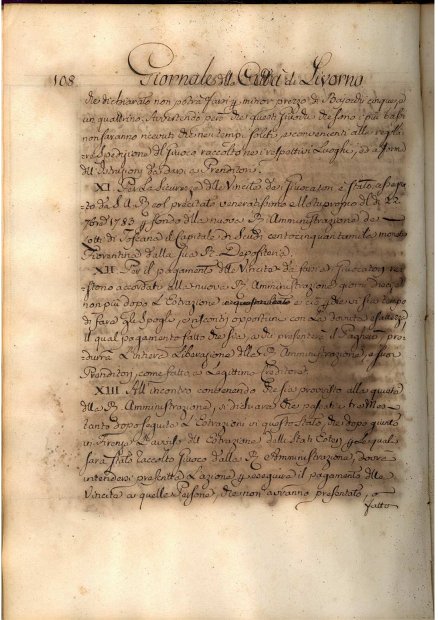 108 Giornale della Città di Livorno
che dichiarato non potrà farsi p minor prezzo di Bajocchi cinque, o
un quattrino, avvertendo però che questi
non saranno ricevuti che nei tempi soliti, e convenienti alla regolar
spedizione del Giuoco raccolto nei respettivi Luoghi, ed a forma
dell Istruzioni da darsi a Prenditori.
XI Per la sicurezza delle Vincite dei Giuocatori è stato assegnato
da S.A.R. col precitato venerato Motuproprio del dì 22
1783 p fondo della nuova R. Amministrazione de
Lotti di Toscana il Capitale di Scudi centocinquantamila moneta
Fiorentina dalla sua R. Depositeria
XII Per il pagamento delle Vincite da farsi a Giuocatori
restono accordati alla nuova R. Amministrazione giorni dieci
non più dopo l'Estrazione e ciò che vi sia tempo
di fare gli Spogli, e riscontri opportuni con la dovuta esattezza
il qual pagamento fatto che sia, a chi presenterà il Paghero, pro
durrà l'intiera liberazione della R. Amministrazione, e suoi
Prenditori, come fatto a Legittimo Creditore.
XIII All incontro contenendo che sia provvisto alla quiete
della R. Amministrazione, si dichiara che passati tre Mesi
tanto dopo seguita l'Estrazioni in questo Stato, che dopo giunto
in Firenze l'avviso dell Estrazione delli Stati Esteri p le quali
sarà stato raccolto Giuoco dalla R. Amministrazione, dovrà
intendersi l'azione p conseguire il pagamento delle
Vincite a quelle Persone, che non avranno presentato, o
fatto